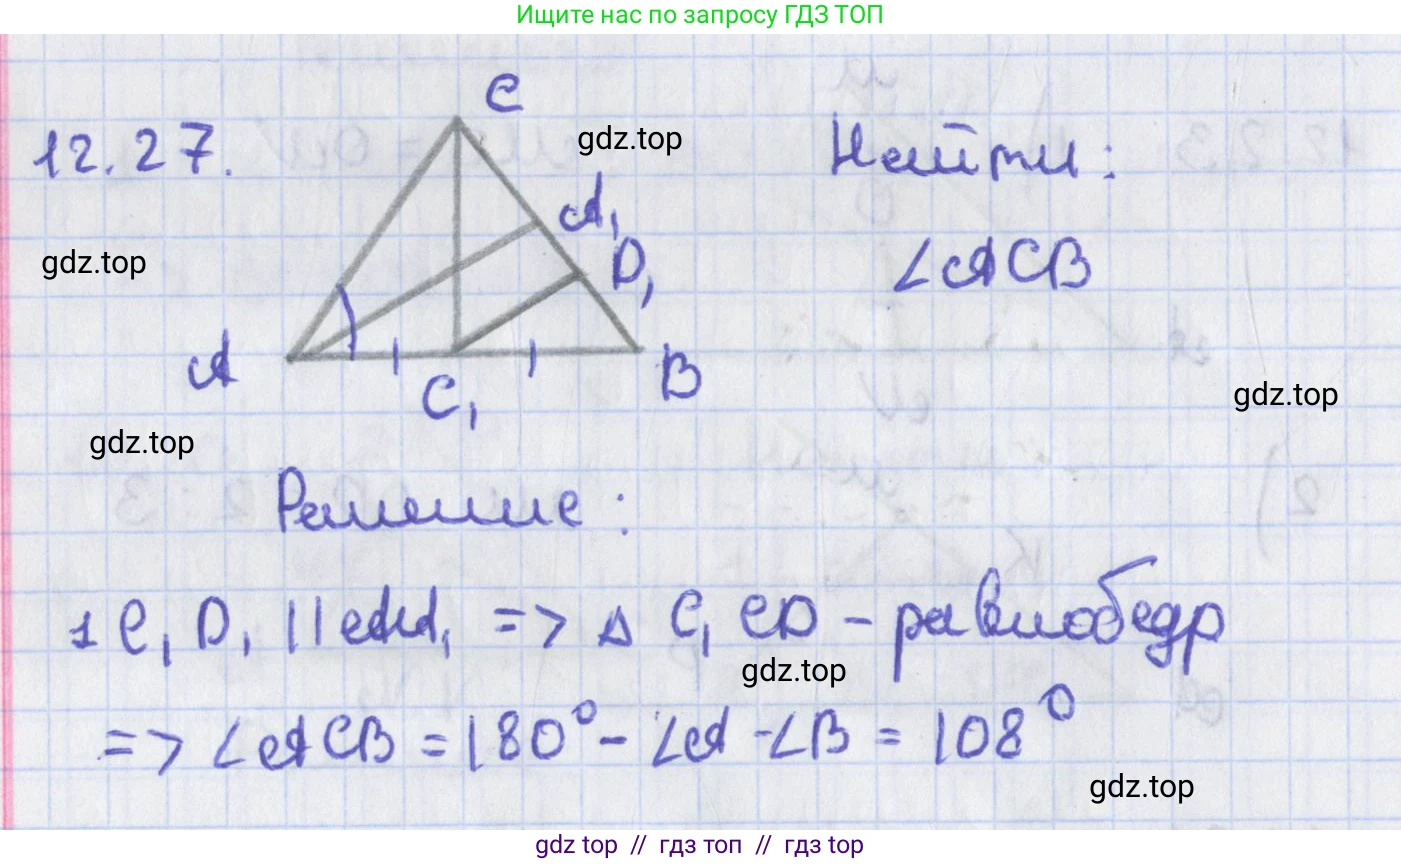 Ищите нас по запросу ГДЗ ТОП
12.27.
C
gdz.top
Найти:
A₁
D₁
∠ACB
gdz.top
A
C₁
B
gdz.top
gdz.top
Решение:
1 C₁D₁ || AA₁ => △ C₁CD – равнобедр
gdz.top
=> ∠ACB = 180° – ∠A - ∠B = 108°
gdz.top
gdz top // гдз топ // гдз top